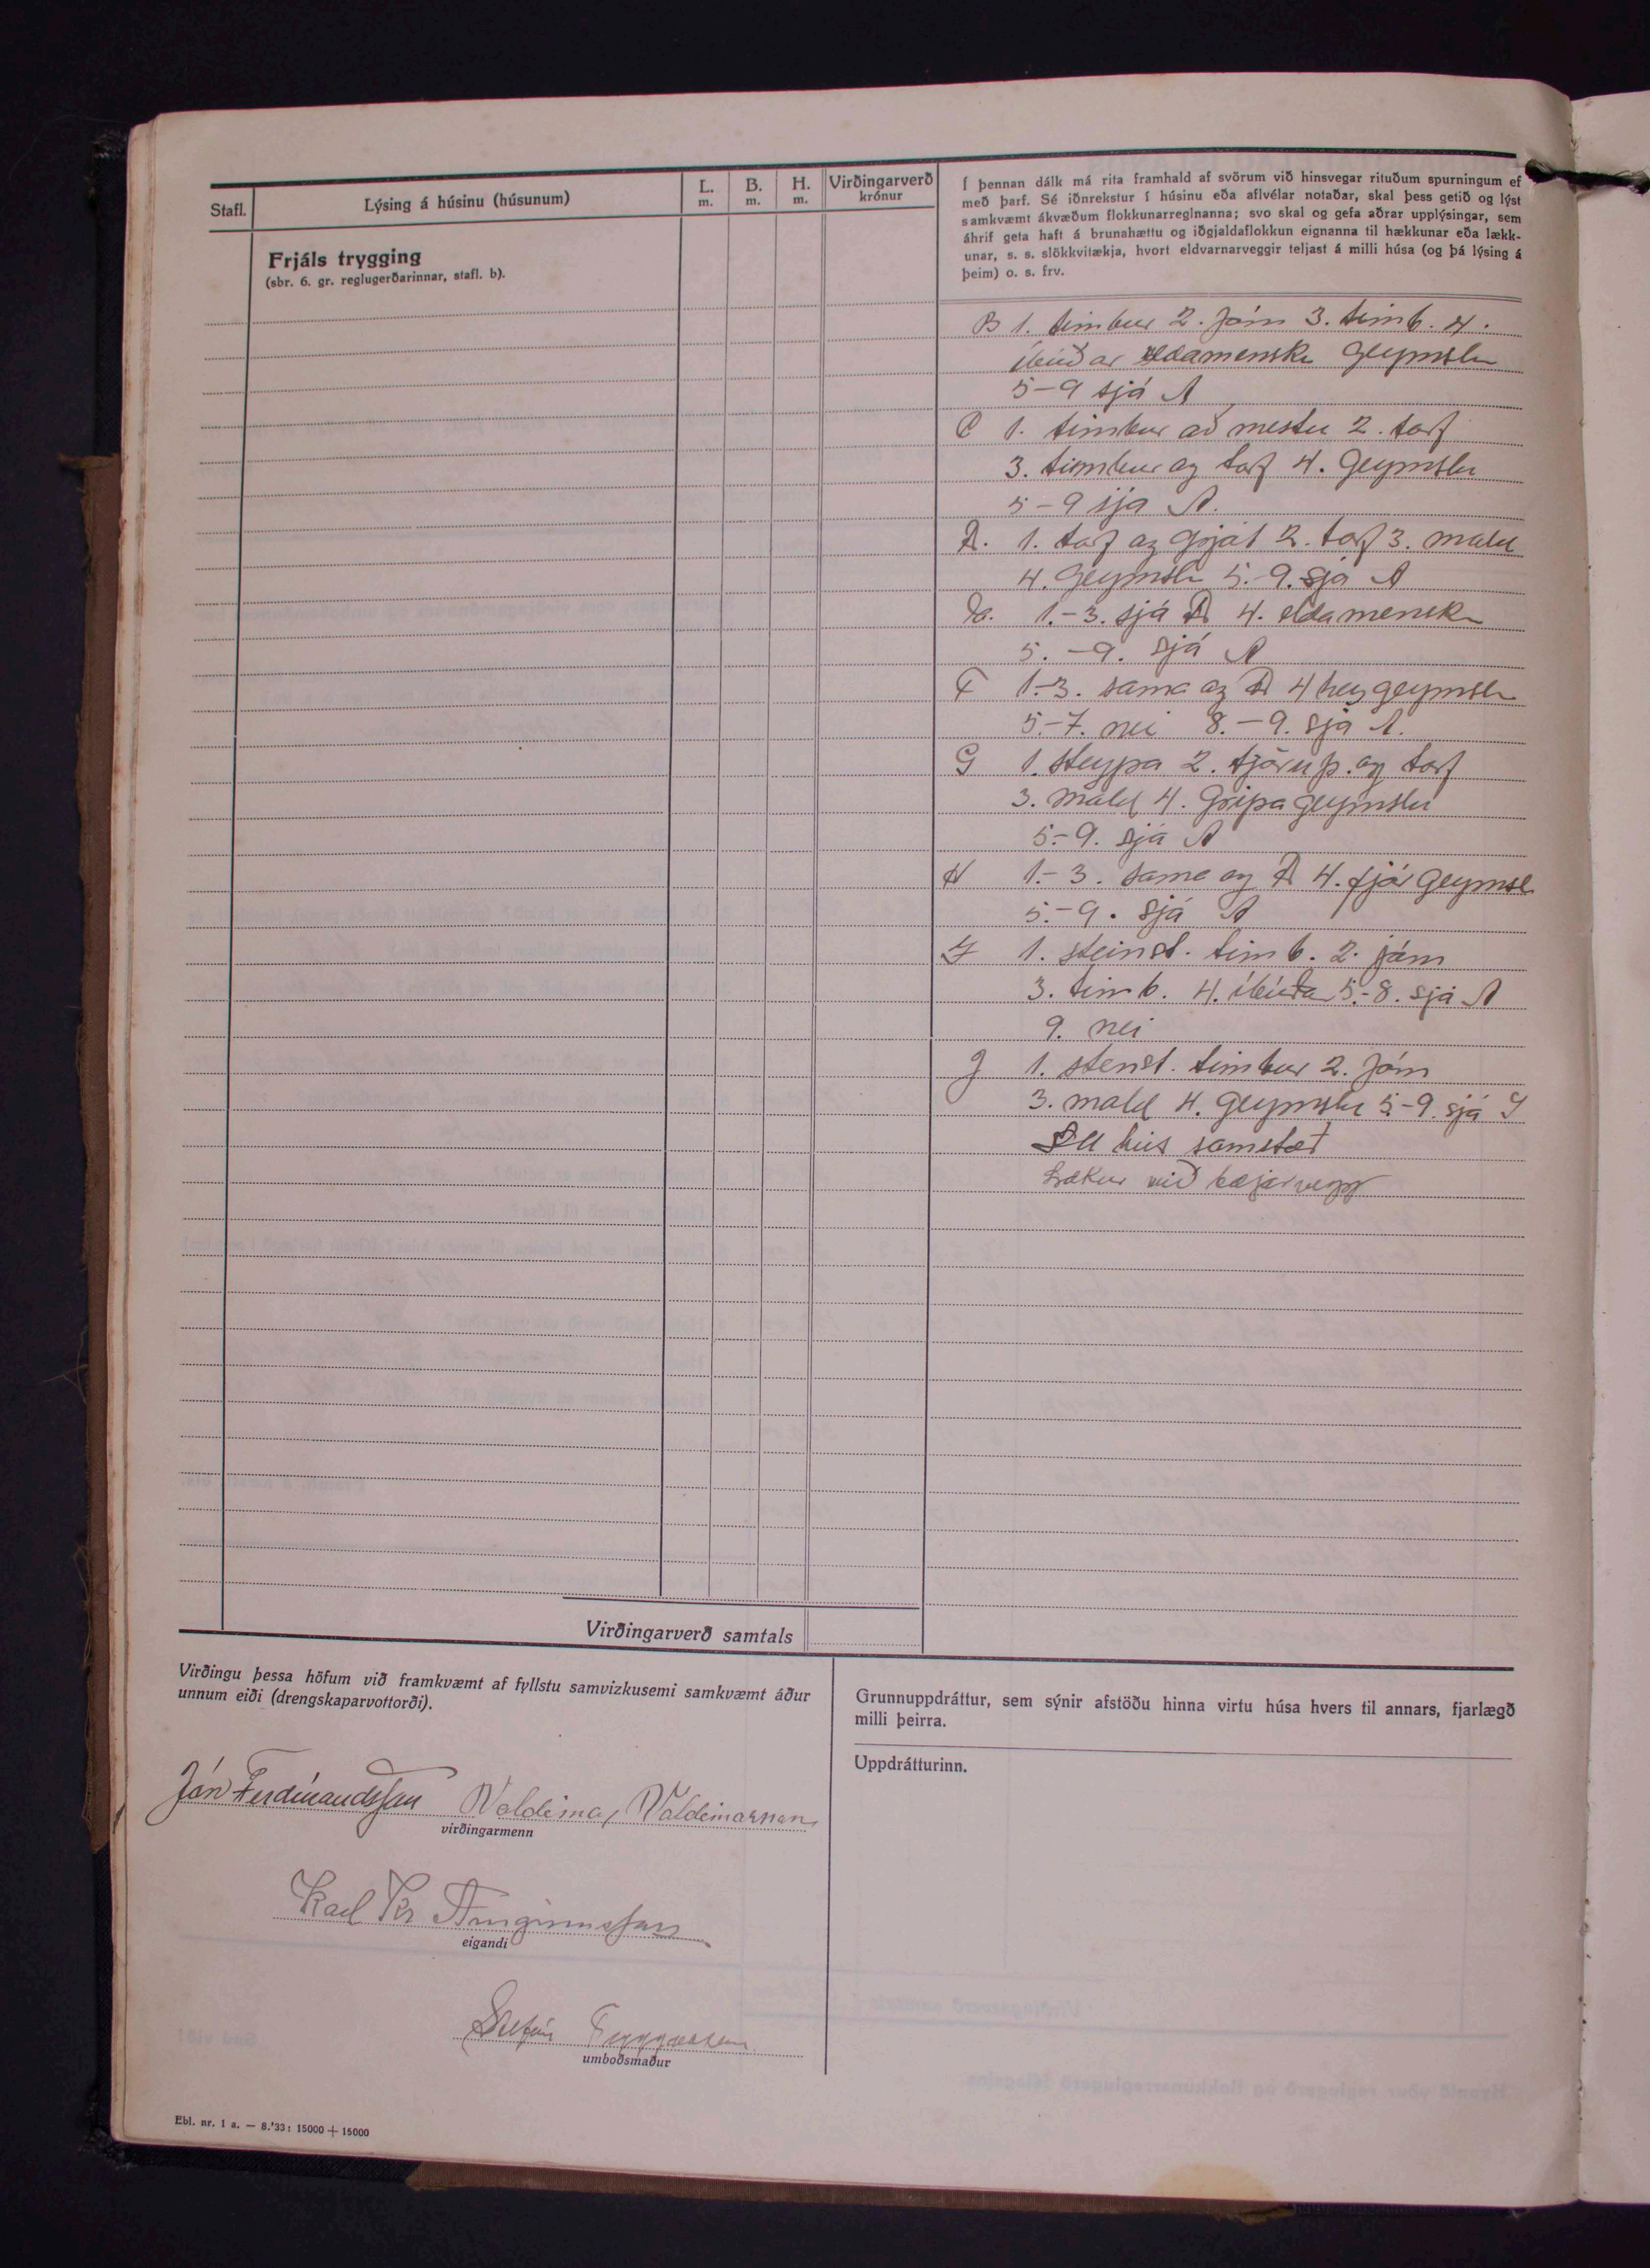 Stafl.
Lýsing á húsinu (húsunum)
L.
m.
B.
m.
H.
m.
Virðingarverð
krónur
Frjáls trygging
(sbr. 6. gr. reglugerðarinnar, stafl. b).
Í þennan dálk má rita framhald af svörum við hinsvegar rituðum spurningum ef
með þarf. Sé iðnrekstur í húsinu eða aflvélar notaðar, skal þess getið og lýst
samkvæmt ákvæðum flokkunarreglnanna; svo skal og gefa aðrar upplýsingar, sem
áhrif geta haft á brunahættu og iðgjaldaflokkun eignanna til hækkunar eða lækk-
unar, s. s. slökkvitækja, hvort eldvarnarveggir teljast á milli húsa (og þá lýsing á
þeim) o. s. frv.
B 1. timbur 2. Járn 3. timb. 4.
íbúðar eldamenska geymsla
5-9 sjá A
C 1. timbur að mestu 2. torf
3. timbur og torf 4. geymslu
5-9 sja A.
D. 1. torf og grjót 2. torf 3. mold
4. geymsla 5.-9. sjá A
1.-3. sjá D 4. eldamensk
5.-9. sjá A
F 1.-3. sama og D 4 hey geymsla
5.-7. nei 8.-9. sjá A.
G 1. steypa 2. tjöru p. og torf
3. mold 4. Gripa geymslu
5.-9. sjá A
H 1.-3. sama og D 4. fjár geymsl
5.-9. sjá A
I 1. steinst. timb. 2. járn
3. timb. 4. íbúðar 5.-8. sjá A
9. nei
J 1. stenst. timbur 2. Járn
3. mold 4. geymslu 5-9. sjá I
Öll hús samstæð
Lækur við bæjarvegg
Virðingarverð samtals
Virðingu þessa höfum við framkvæmt af fyllstu samvizkusemi samkvæmt áður
unnum eiði (drengskaparvottorði).
Jón Ferdínandsson Valdimar Valdimarsson
virðingarmenn
Karl Kr Arngrímsson
eigandi
Stefán Tryggvason
umboðsmaður
Grunnuppdráttur, sem sýnir afstöðu hinna virtu húsa hvers til annars, fjarlægð
milli þeirra.
Uppdrátturinn.
Ebl. nr. 1 a. — 8.'33: 15000 + 15000